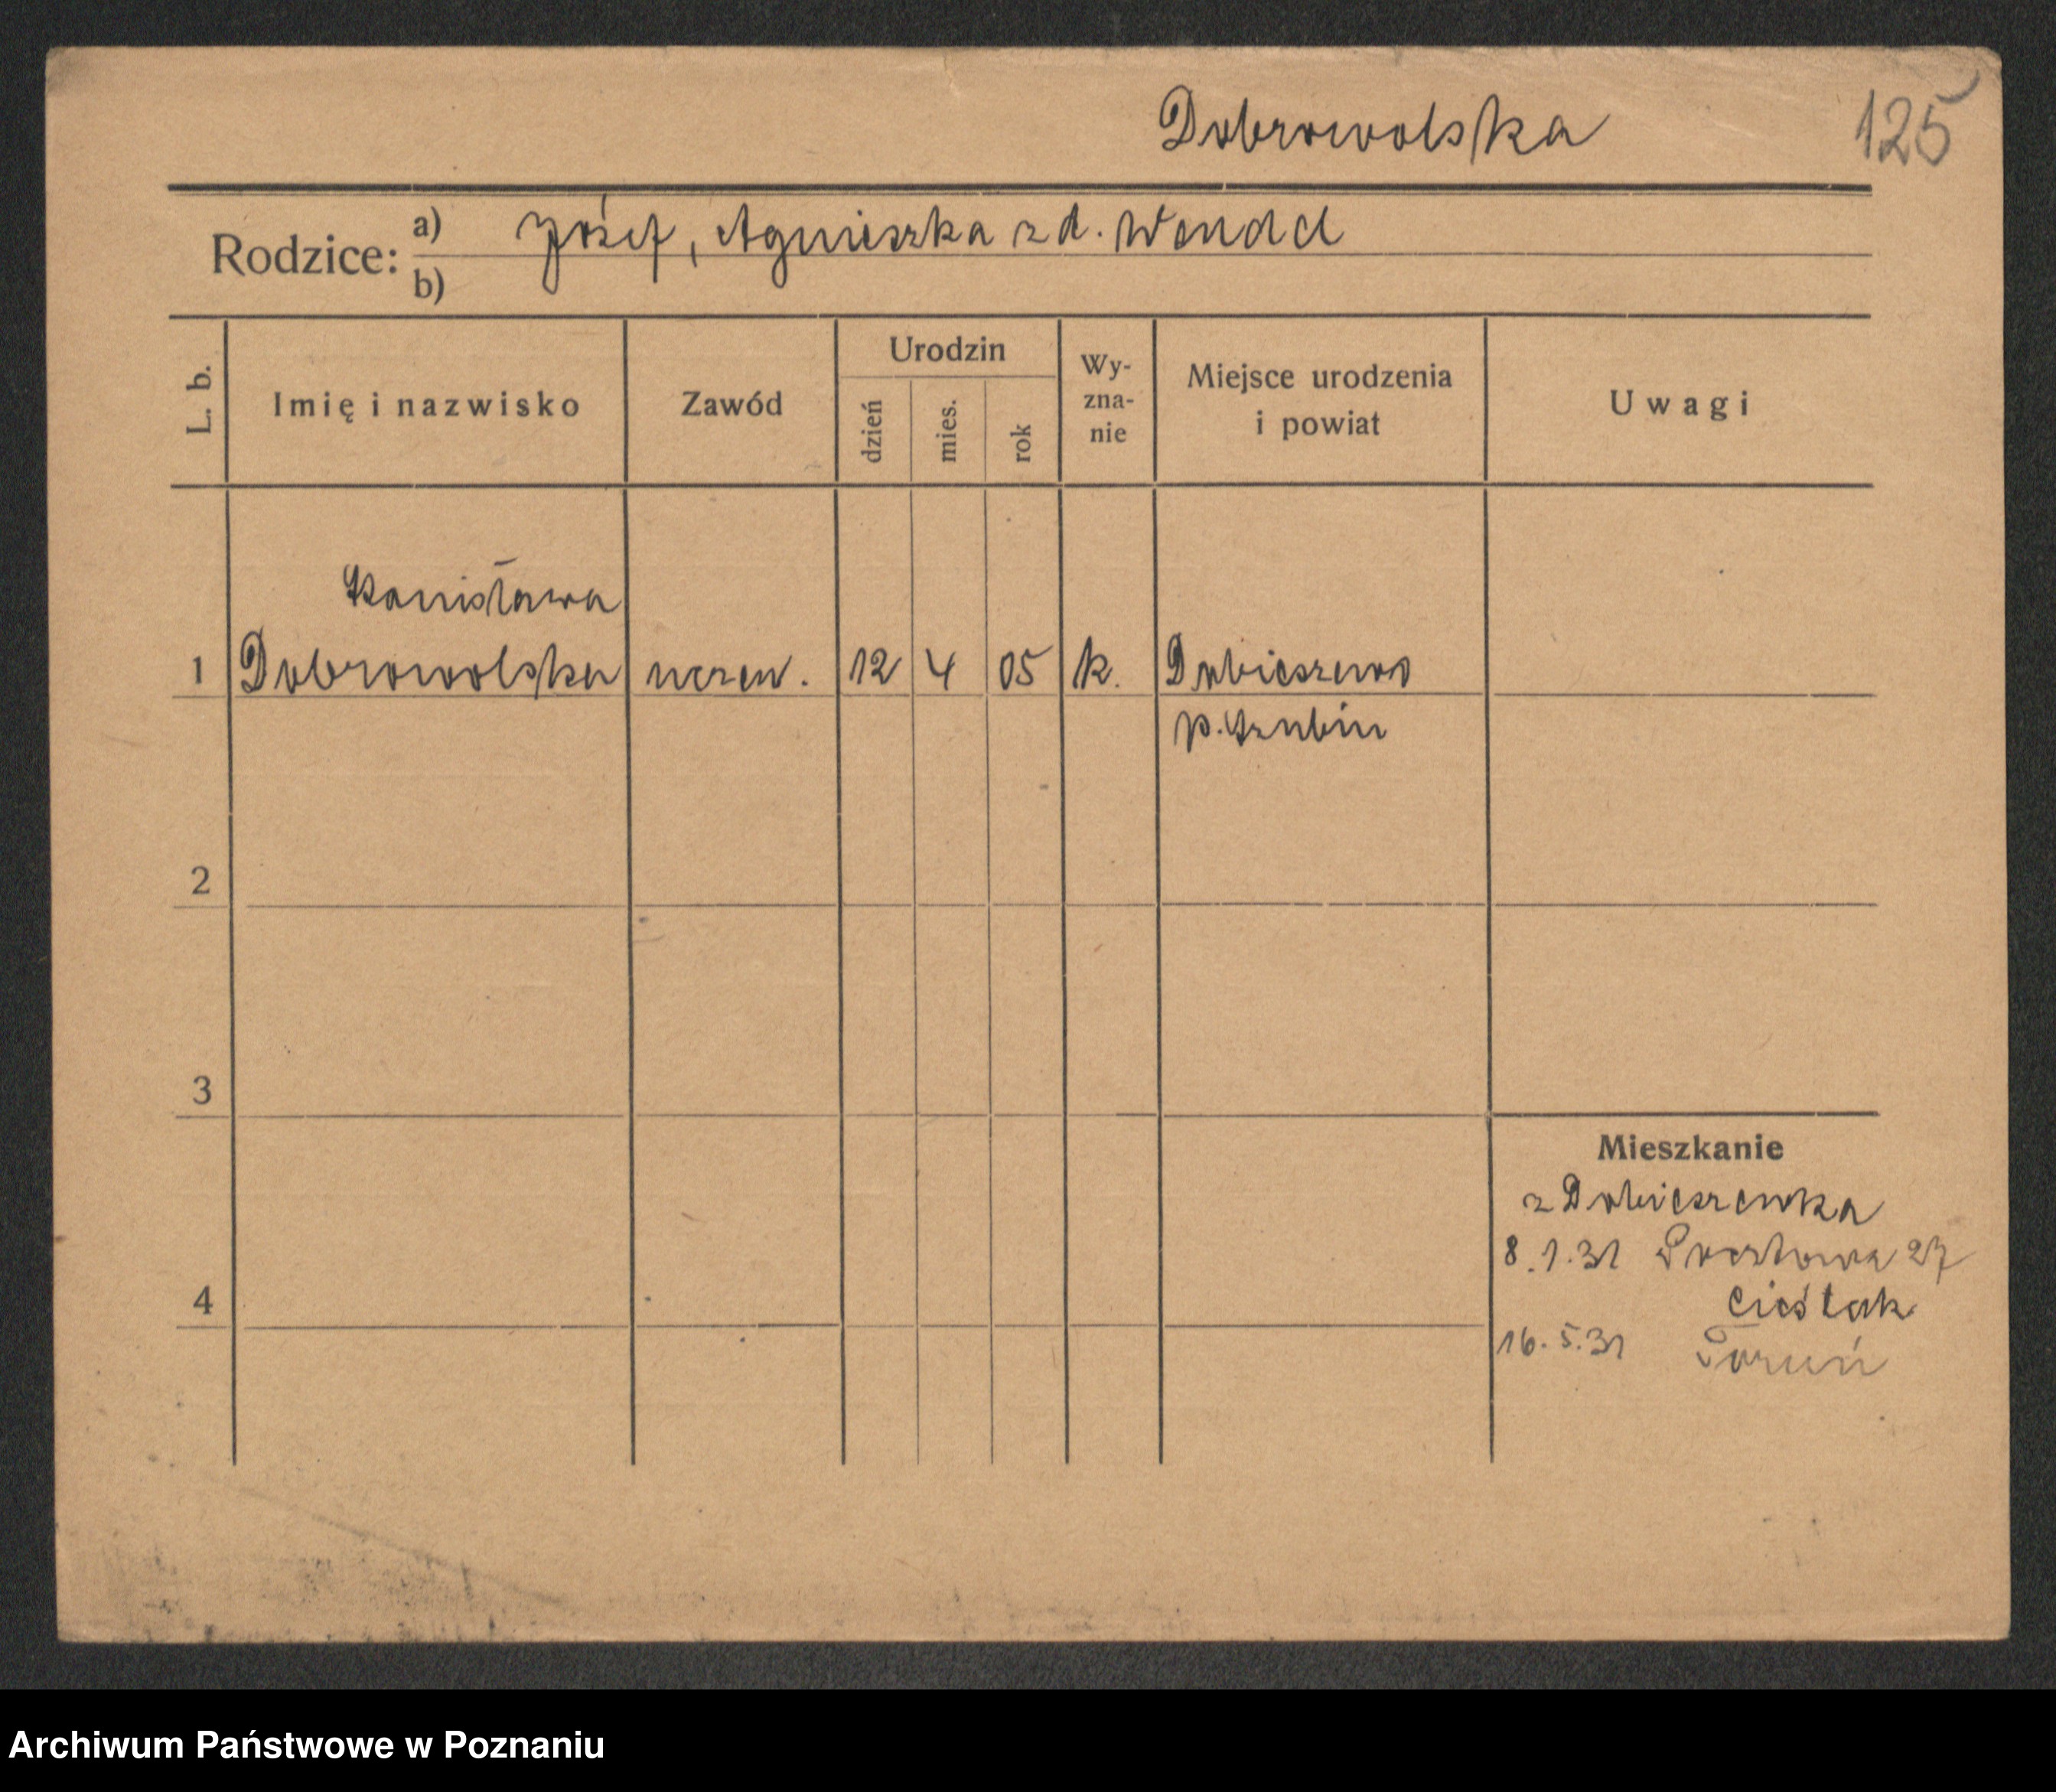 Dobrowolska
125
Rodzice:
a) Józef, Agnieszka z d. Wendel
b)
L. b.
Imię i nazwisko
Zawód
Urodzin
dzień
mies.
rok
Wy-
zna-
nie
Miejsce urodzenia
i powiat
Uwagi
Stanisława
1 Dobrowolska uczen. 12 4 05 k. Dobieszewo
p. Szubin
2
3
Mieszkanie
z Dobieszewka
8.1.31 Pocztowa 27
Cieślak
4
16.5.31 Toruń
Archiwum Państwowe w Poznaniu